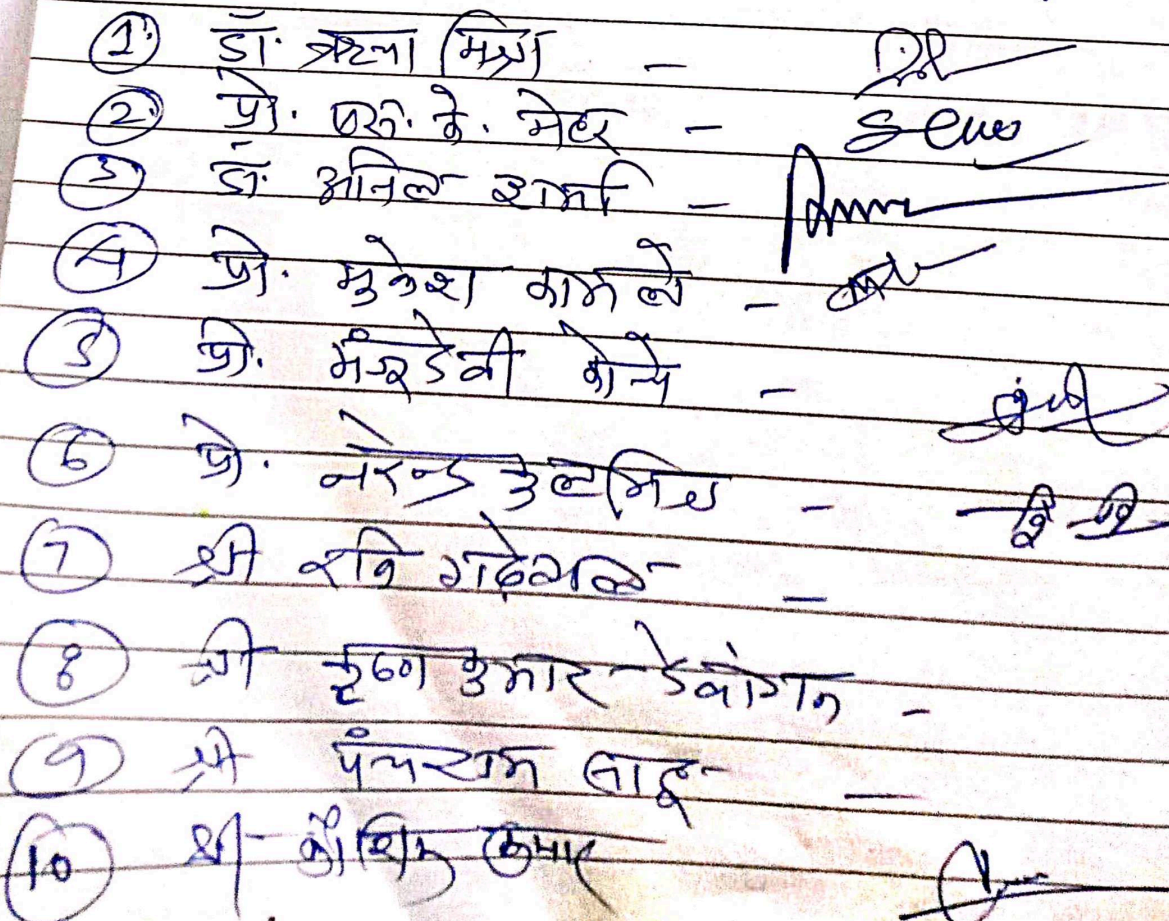 ① डॉ. सरला मिश्रा -
② प्रो. एस. के. मेहर -
③ डॉ. अनिल शर्मा -
④ प्रो. मुकेश कामले -
⑤ प्रो. मंजूदेवी कोचे -
⑥ प्रो. नरेन्द्र कुलमित्र -
⑦ श्री रवि गढ़ेवाल -
⑧ श्री कृष्ण कुमार देवांगन -
⑨ श्री पंचराम साहू -
⑩ श्री कौशिक कुमार